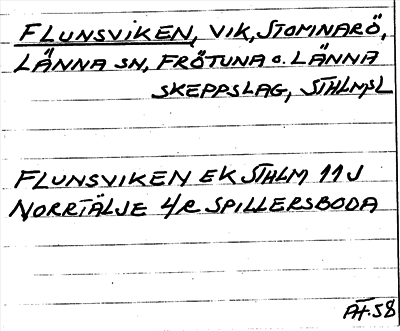 FLUNSVIKEN, VIK, STOMNARÖ,
LÄNNA SN, FRÖTUNA O. LÄNNA
SKEPPSLAG, STHLMSL
FLUNSVIKEN EK STHLM 11J
NORRTÄLJE 4/R SPILLERSBODA
AH.58